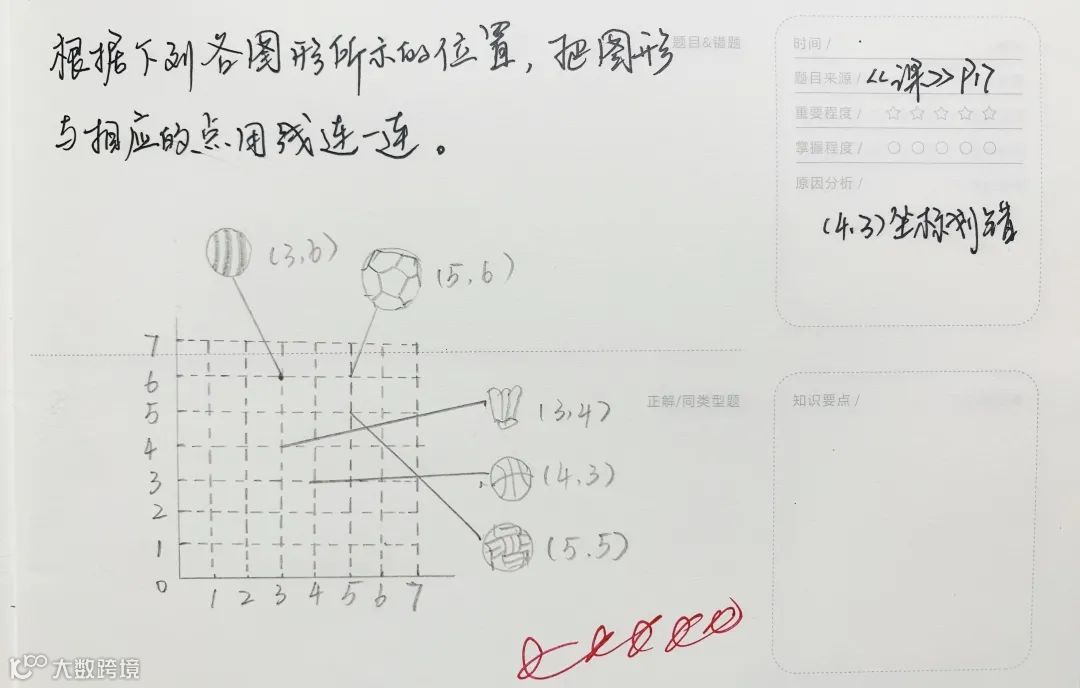 题目&错题
根据下列各图形所示的位置，把图形
与相应的点用线连一连。
时间 /
题目来源 / <<课>> P17
重要程度 / ☆ ☆ ☆ ☆ ☆
掌握程度 / ○ ○ ○ ○ ○
原因分析 /
(4.3)坐标划错
(3,6)
(5,6)
7
6
5
4
3
2
1
0
1 2 3 4 5 6 7
(3,4)
(4.3)
(5.5)
正解/同类型题
知识要点 /
大数跨境